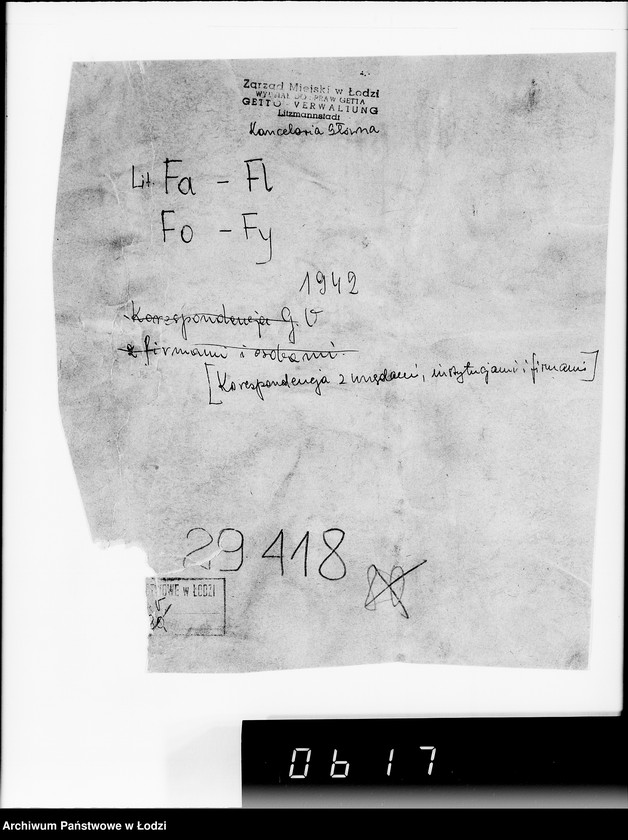 Zarząd Miejski w Łodzi
WYDZIAŁ DO SPRAW GETTA
GETTO - VERWALTUNG
Litzmannstadt
Kancelaria Główna
Lit. Fa - Fl
Fo - Fy
1942
Korespondencja G.V
z firmami i osobami
[Korespondencja z urzędami, instytucjami i firmami]
29 418
WOWE w ŁODZI
0617
Archiwum Państwowe w Łodzi